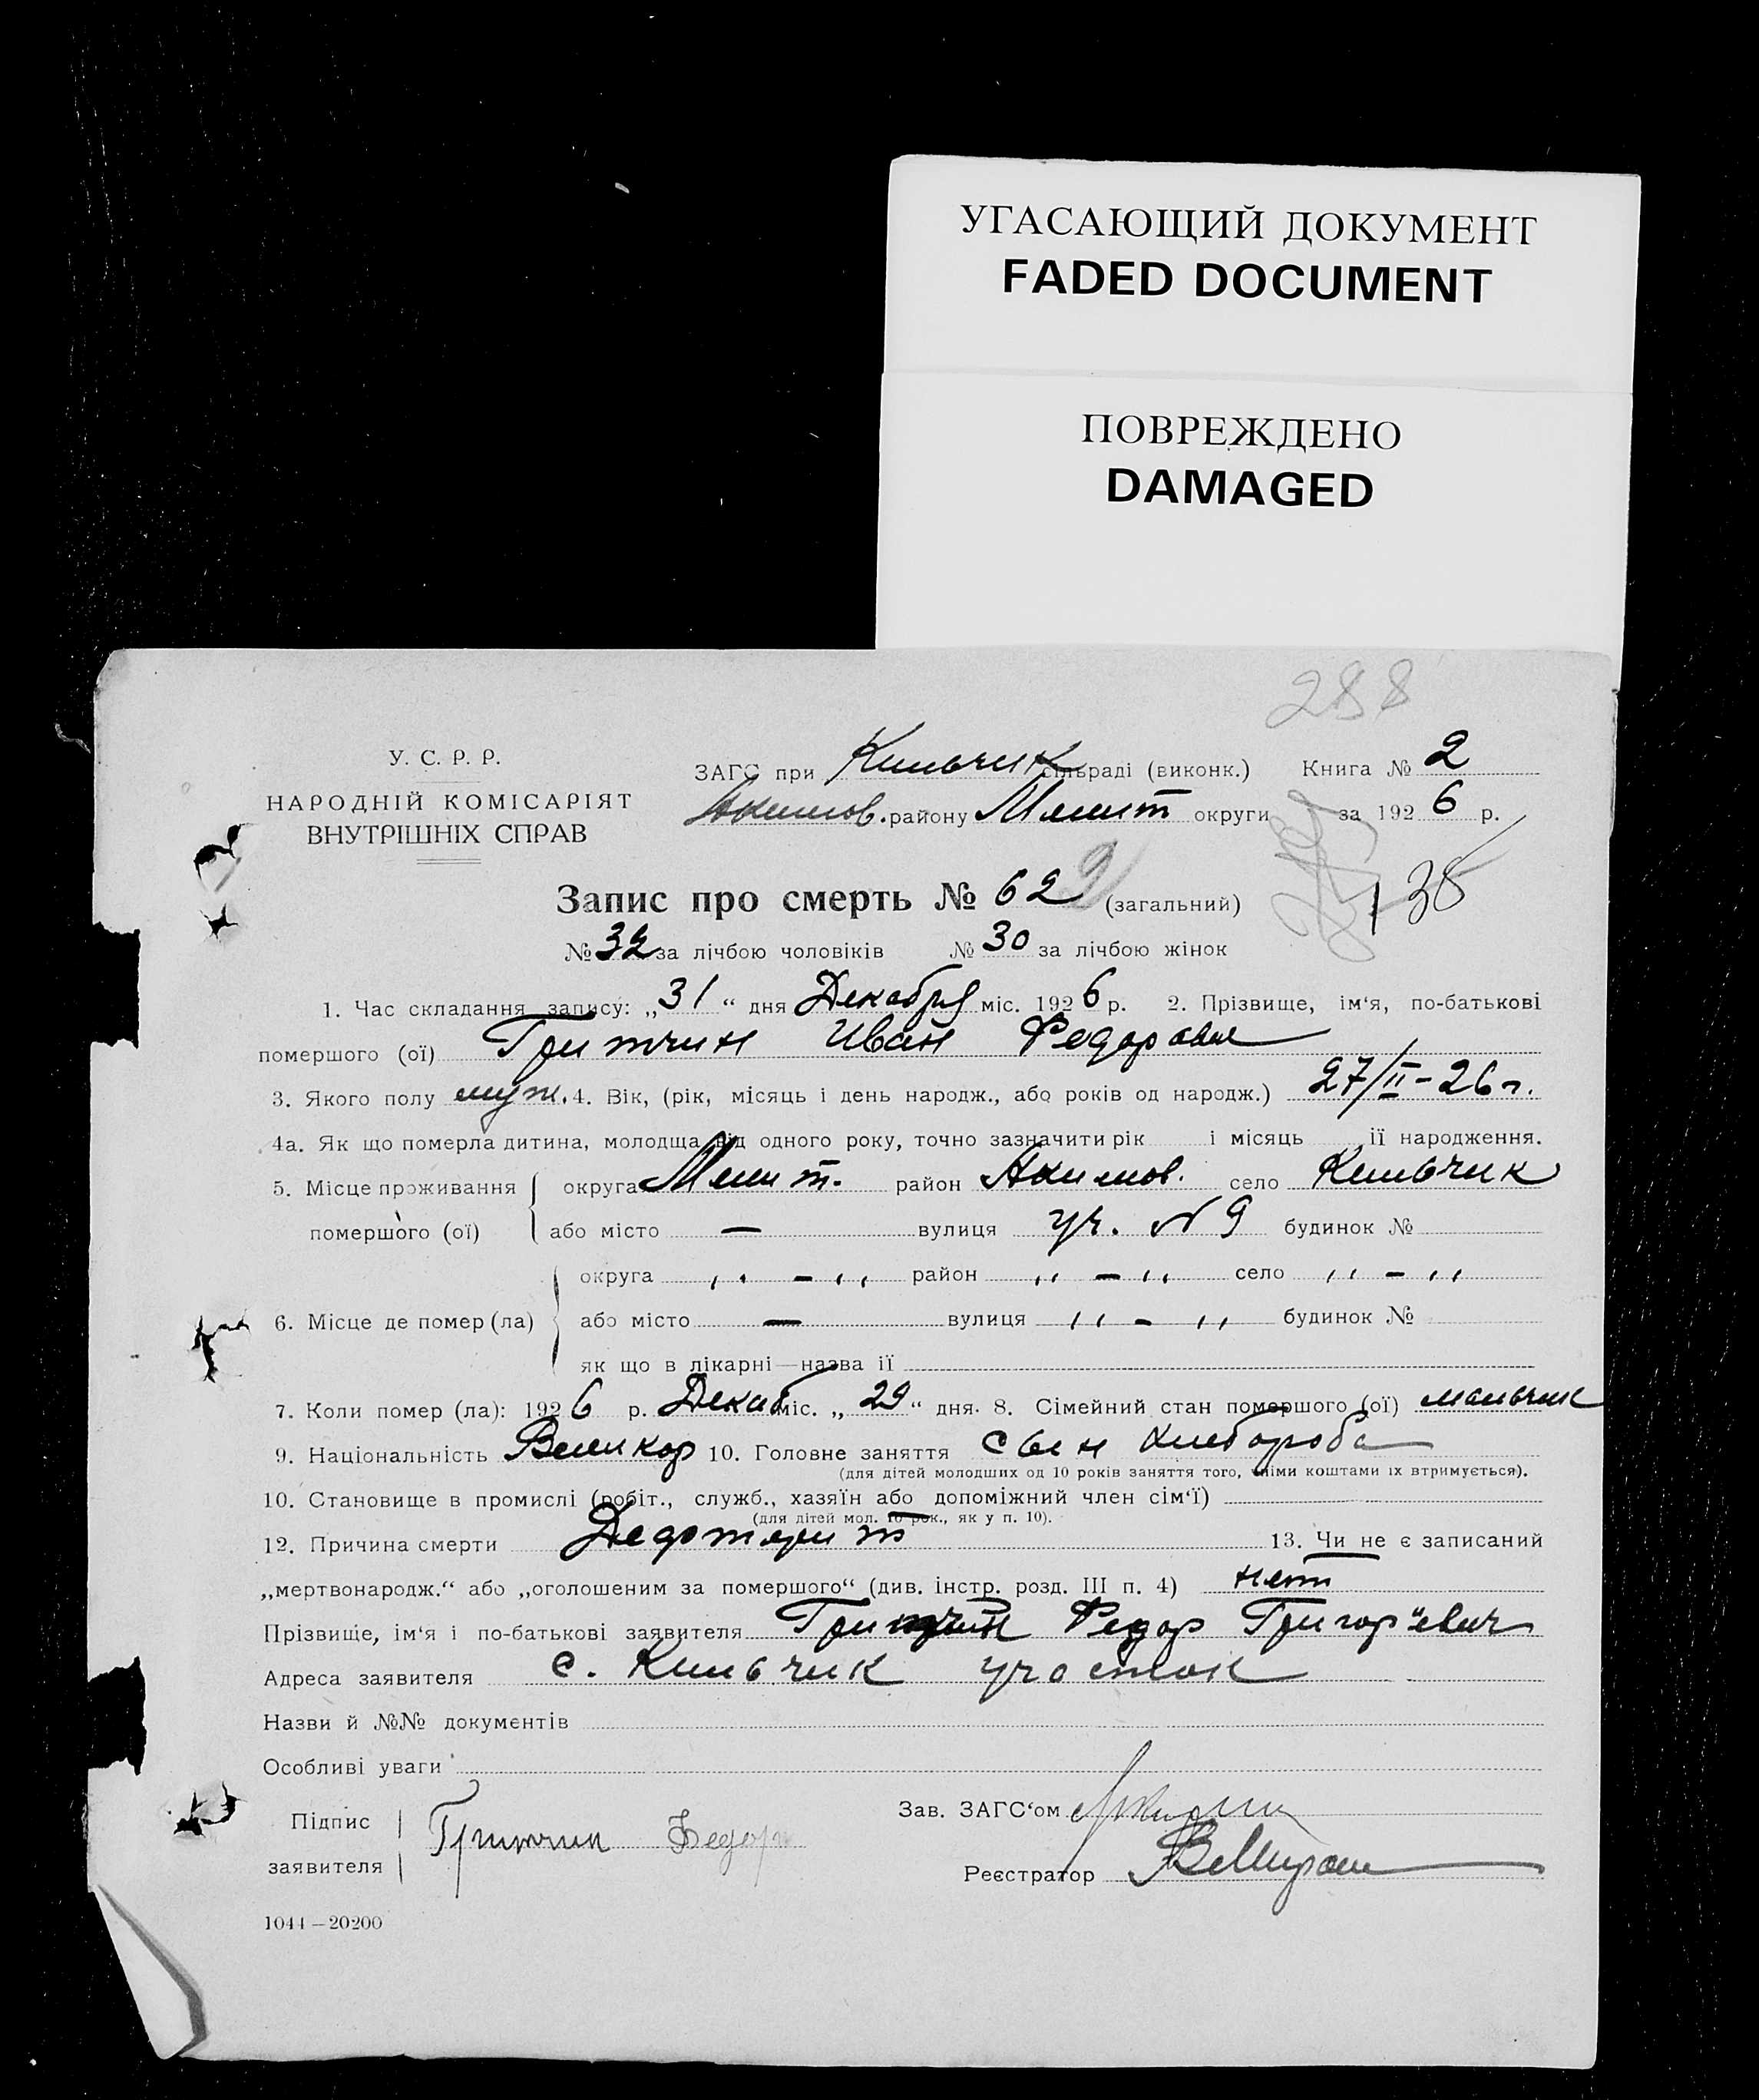 УГАСАЮЩИЙ ДОКУМЕНТ
FADED DOCUMENT
ПОВРЕЖДЕНО
DAMAGED
288
У. С. Р. Р.
НАРОДНІЙ КОМІСАРІЯТ
ВНУТРІШНІХ СПРАВ
ЗАГС при Кильчик сільраді (виконк.) Книга № 2
Акимов. району Мелит округи за 1926 р.
135
Запис про смерть № 62 (загальний)
№ 32 за лічбою чоловіків № 30 за лічбою жінок
1. Час складання запису: „31“ дня Декабря міс. 1926 р. 2. Прізвище, ім‘я, по-батькові
помершого (ої) Гритчин Иван Федорович
3. Якого полу муж. 4. Вік, (рік, місяць і день народж., або років од народж.) 27/II-26 г.
4а. Як що померла дитина, молодща від одного року, точно зазначити рік і місяць ії народження.
5. Місце проживання округа Мелит. район Акимов. село Кильчик
помершого (ої) або місто — вулиця уч. № 9 будинок №
округа „ — „ район „ — „ село „ — „
6. Місце де помер (ла) або місто — вулиця „ — „ будинок №
як що в лікарні—назва ії
7. Коли помер (ла): 1926 р. Декаб міс. „29“ дня. 8. Сімейний стан помершого (ої) мальчик
9. Національність Великор 10. Головне заняття сын хлебороба
(для дітей молодших од 10 років заняття того, чиїми коштами їх втримується).
10. Становище в промислі (робіт., служб., хазяїн або допоміжний член сім‘ї)
(для дітей мол. 10 рок., як у п. 10). —
12. Причина смерти Дефтерит 13. Чи не є записаний
„мертвонародж.“ або „оголошеним за помершого“ (див. інстр. розд. III п. 4) нет
Прізвище, ім‘я і по-батькові заявителя Гритчин Федор Григорьевич
Адреса заявителя с. Кильчик участок
Назви й №№ документів
Особливі уваги
Підпис Гритчин Федор Зав. ЗАГС‘ом
заявителя Реєстратор
1044—20200